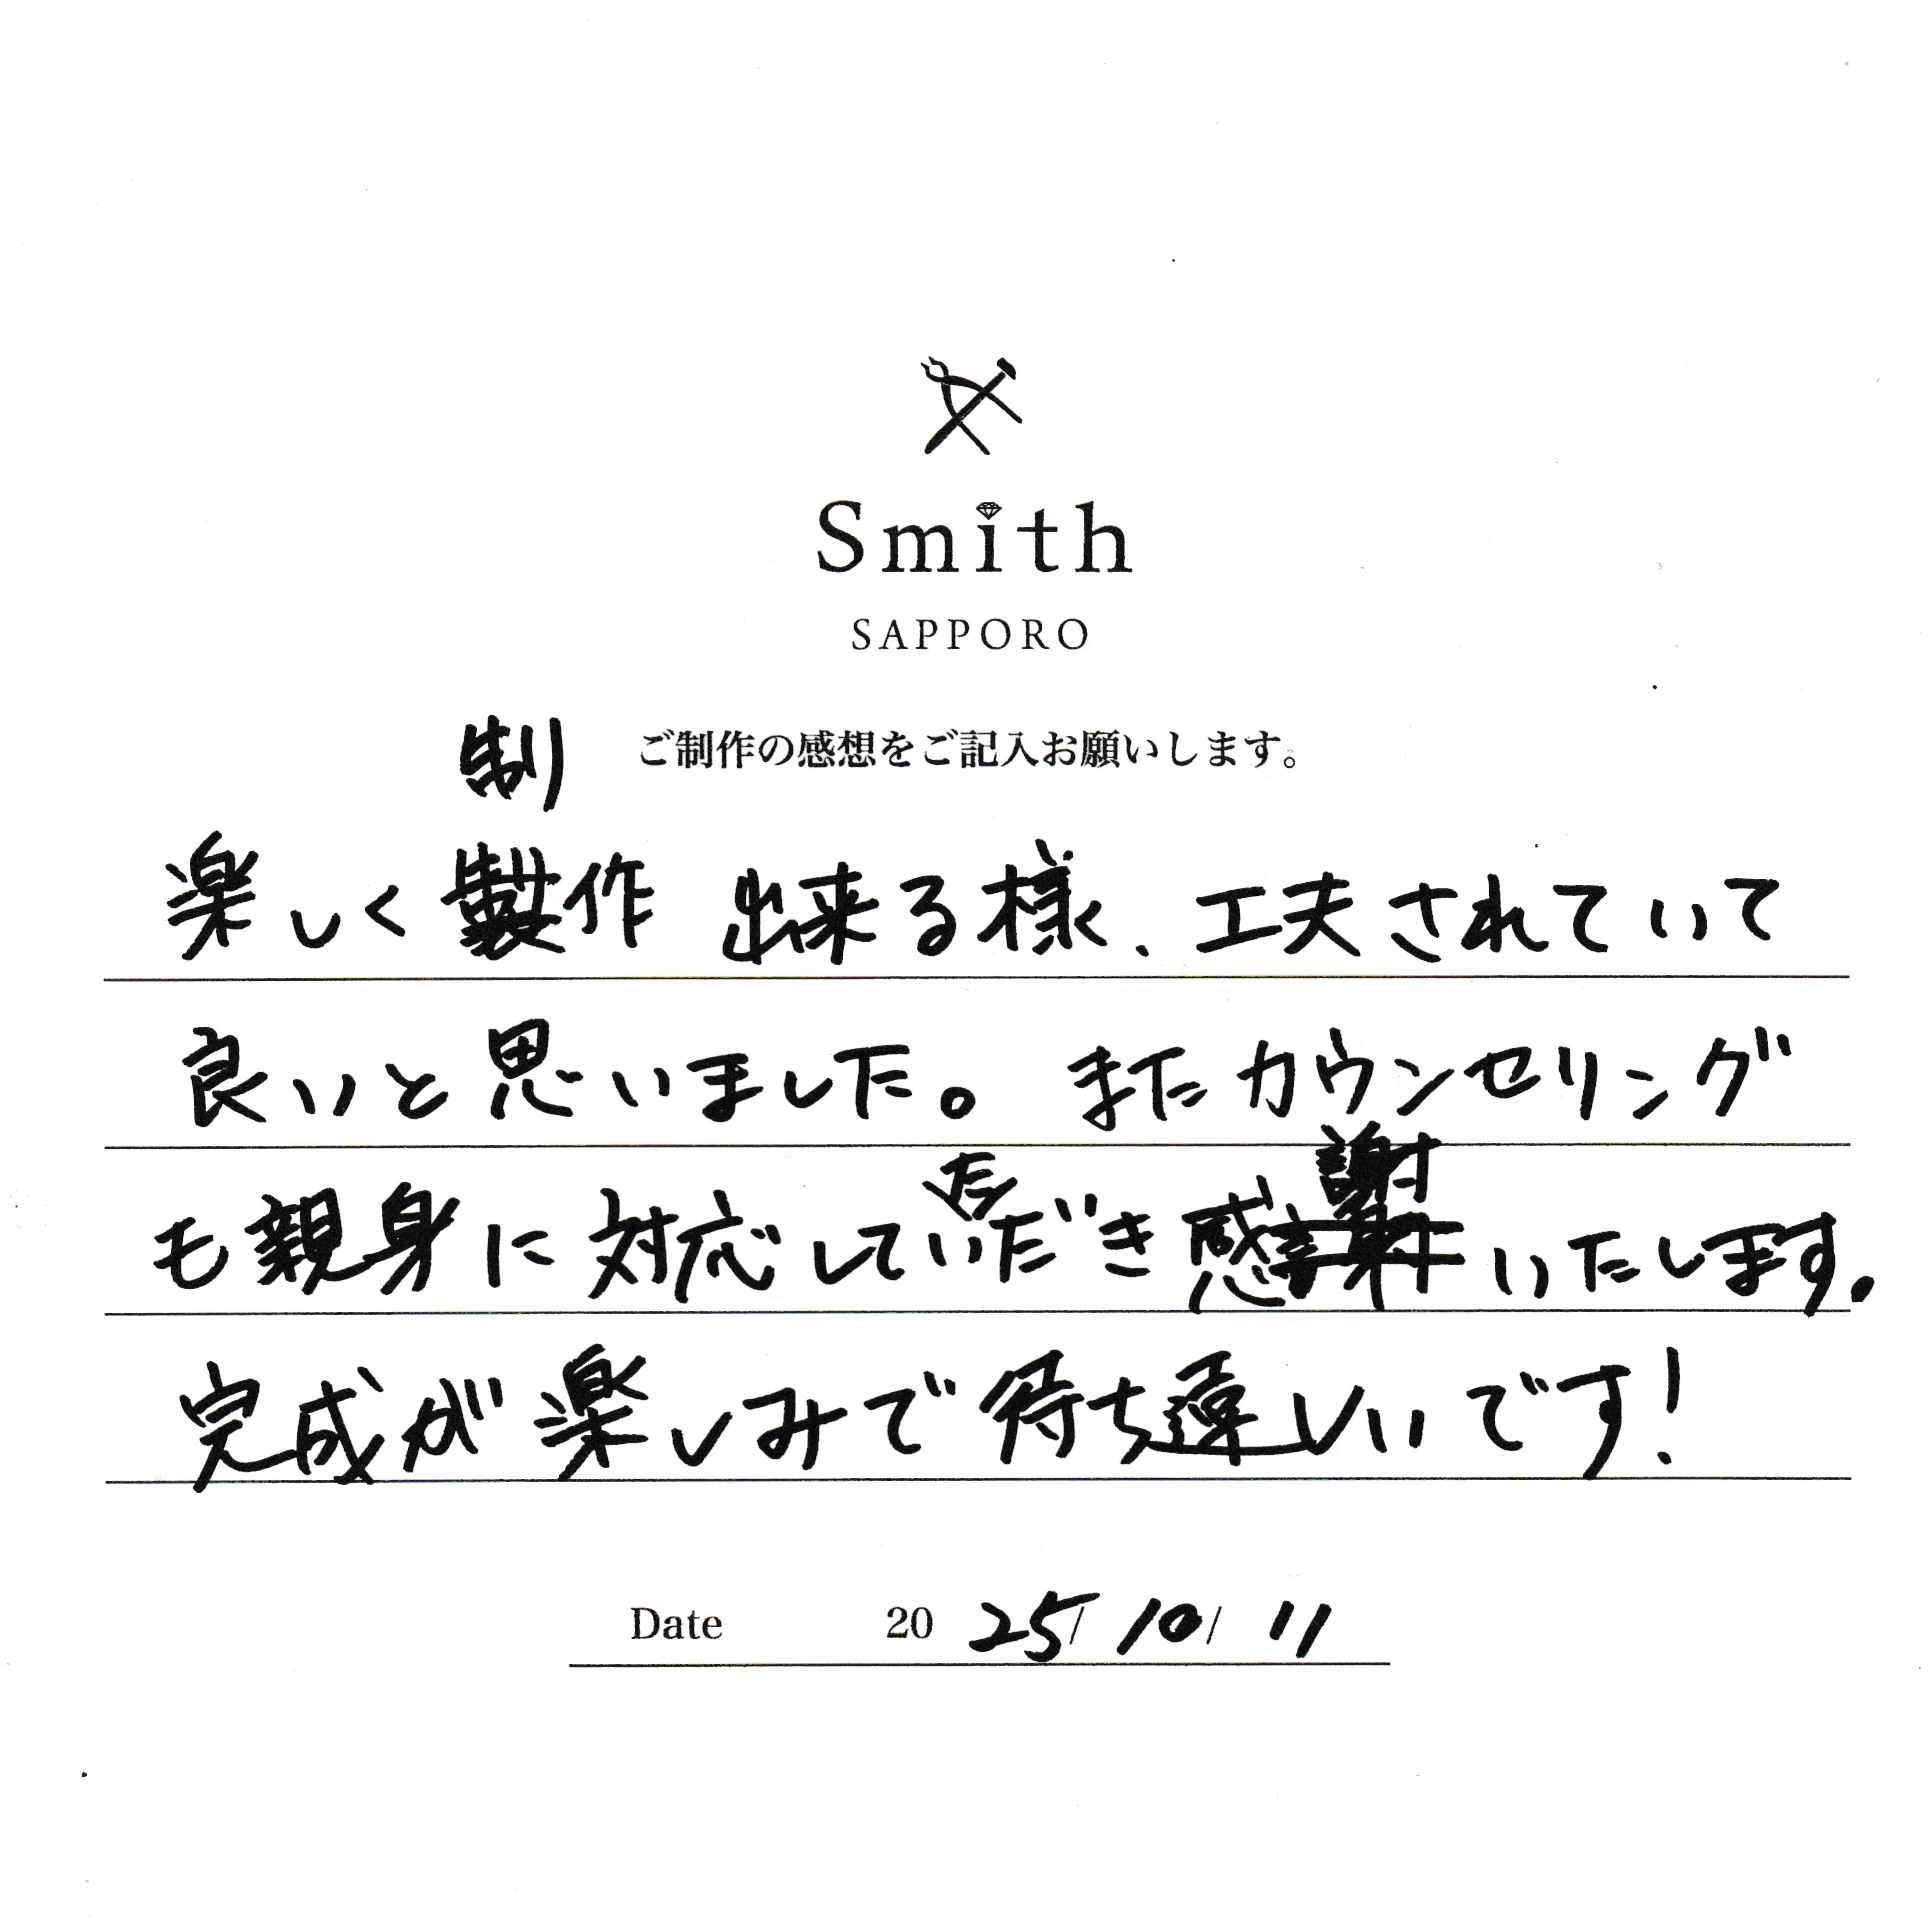 Smith
SAPPORO
ご制作の感想をご記入お願いします。
制
楽しく製作 出来る様、工夫されていて
良いと思いました。またカウンセリング
た 謝
も親身に対応していだき感いたします.
完成が楽しみで待ち遠しいです!
Date 2025/10/11